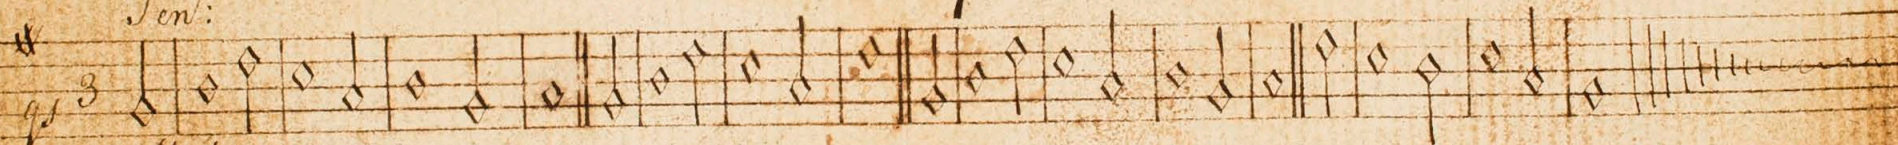 Ten:
3